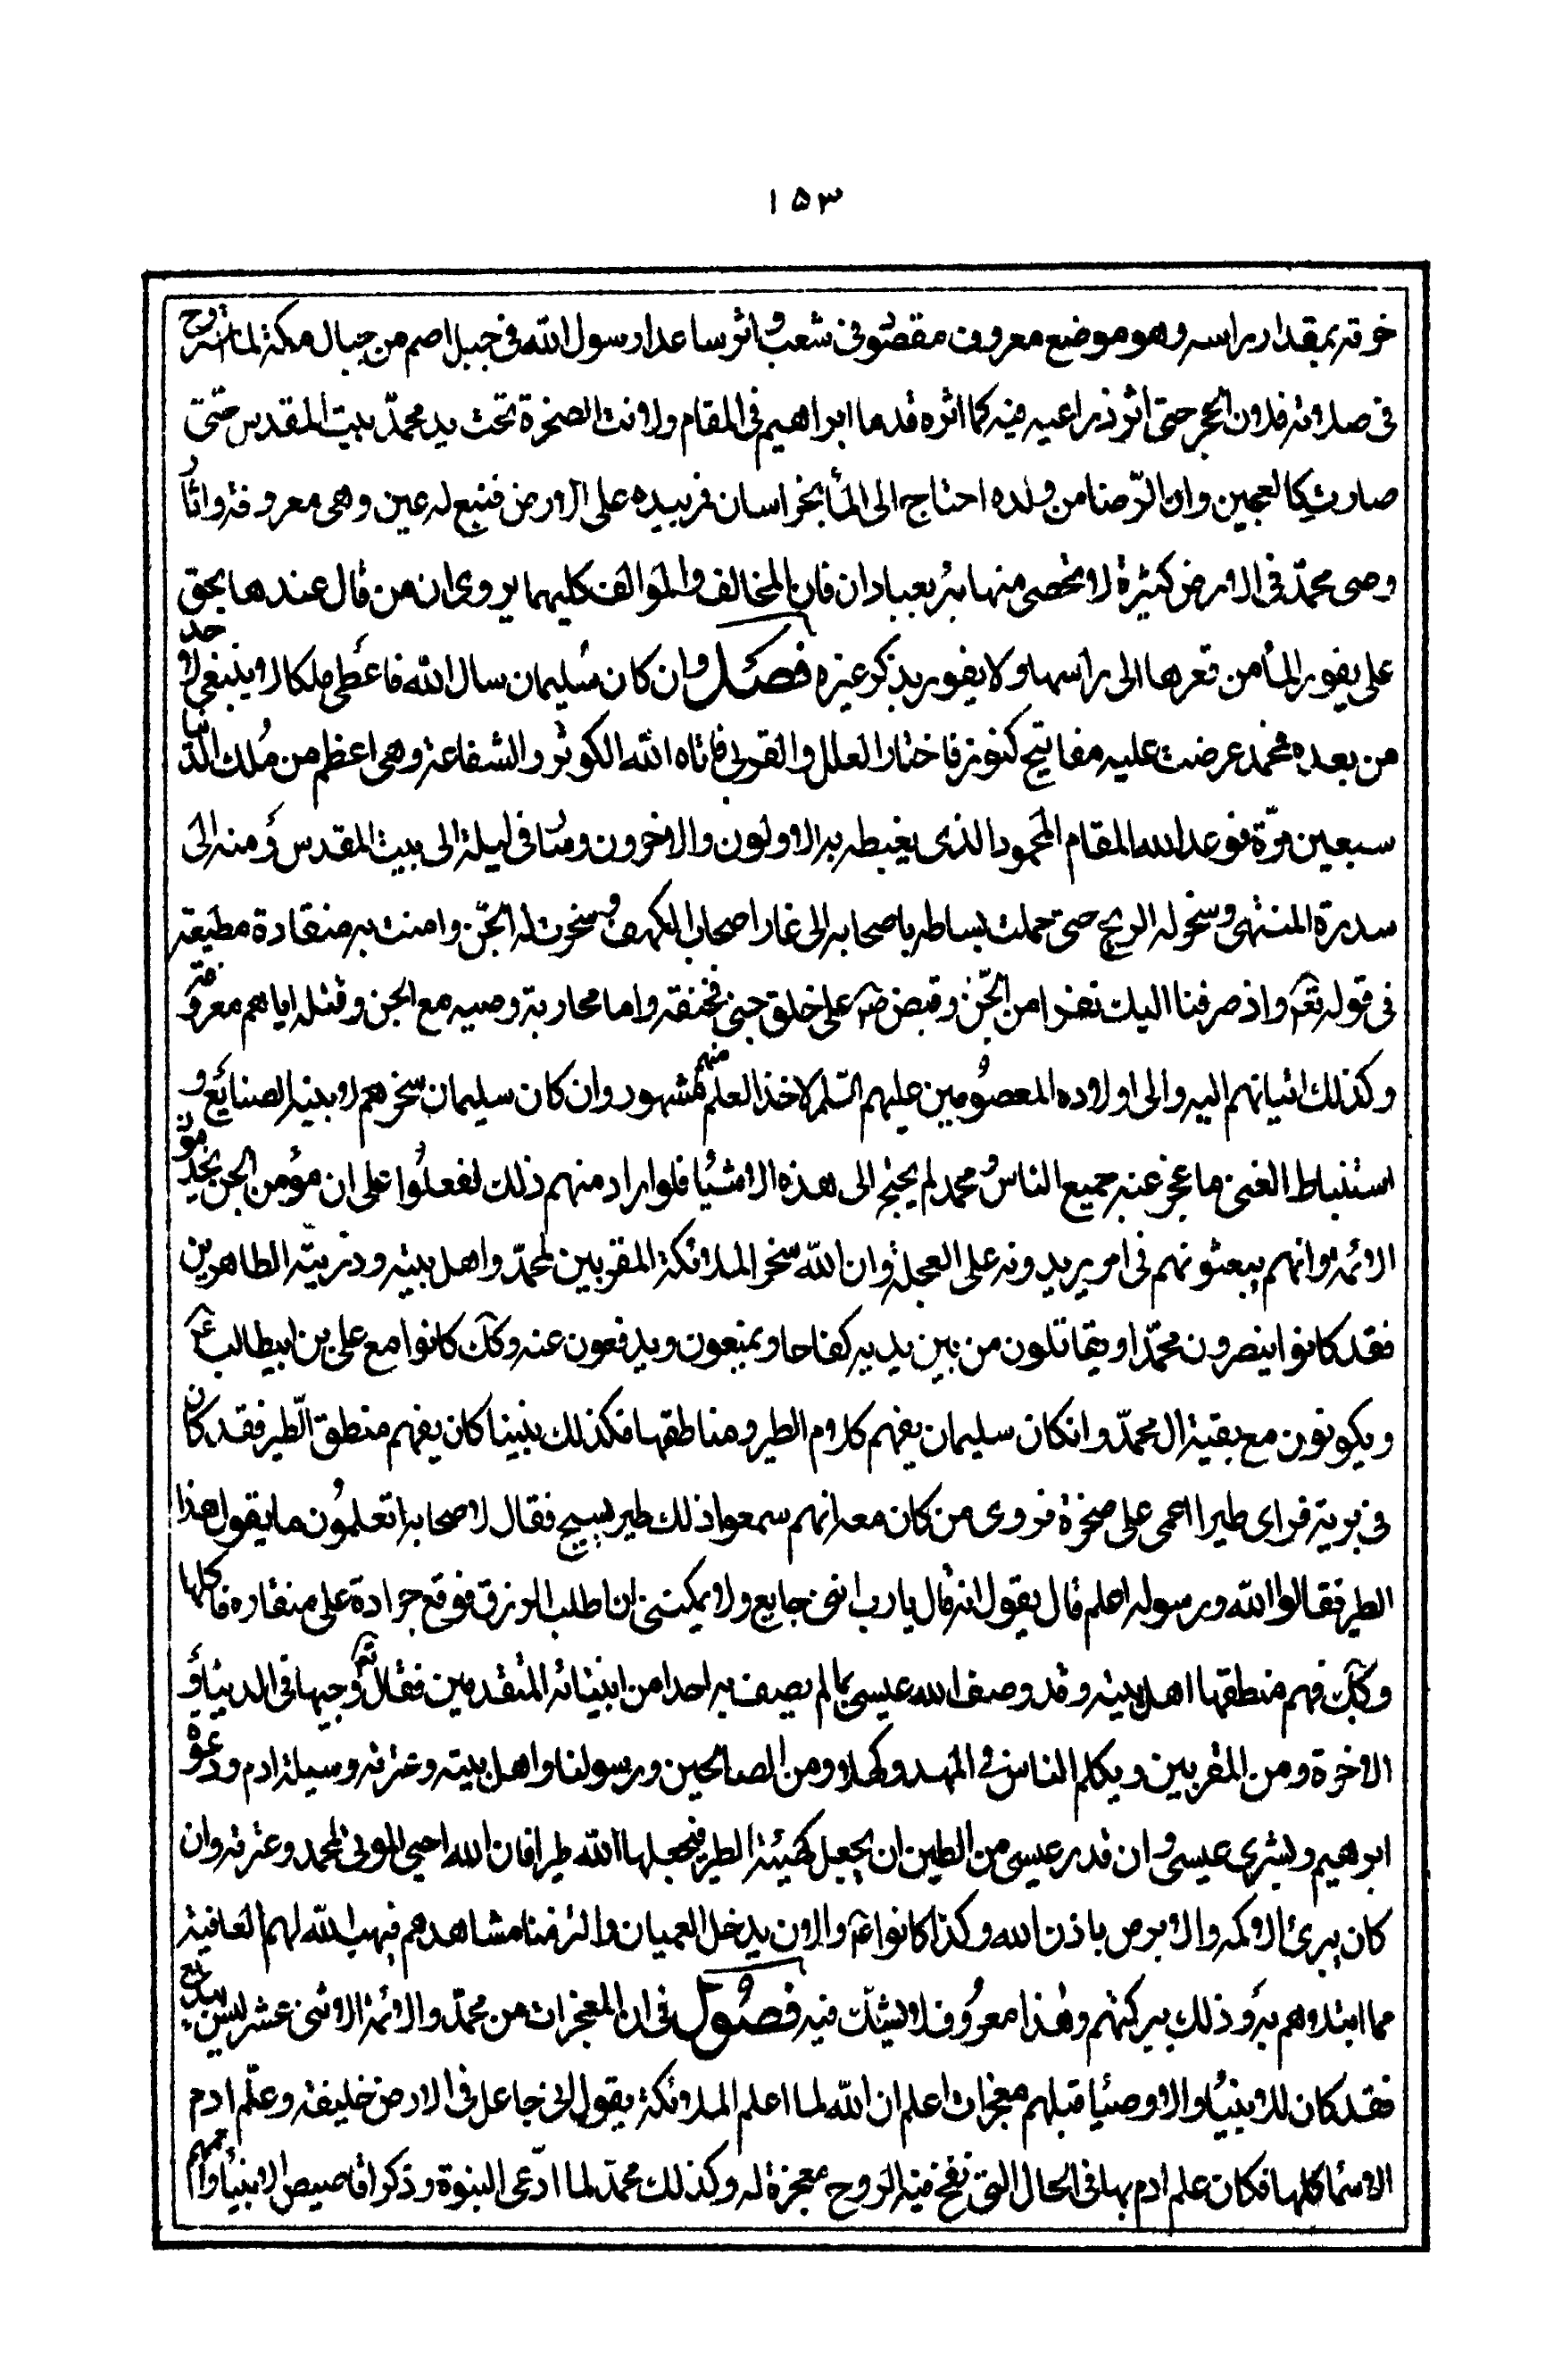 ١٥٣
خرقته بمقدار راسه وهو موضع معروف مقصود فى شعب واثر ساعدا رسول الله فى جبل اصم من جبال مكة لما استروح
فى صلاته فلان الحجر حتى اثر ذراعيه فيه كما اثره قدما ابراهيم فى المقام ولانت الصخرة تحت يد محمّد ببيت المقدس حتّى
صارت كالعجين وان الرّضا من ولده احتاج الى المأ بخراسان فربيده على الارض فنبع له عين وهى معروفة واثار
وصى محمّد فى الارض كثيرة لا تحصى منها بئر بعبادان فان المخالف والموالف كليهما يروى ان من قال عندها بحق
على يفور المأ من قعرها الى راسها ولا يفور بذكر غيره فصل وان كان سليمان سال الله فاعطى ملكا لا ينبغى لاحد
من بعده محمد عرضت عليه مفاتيح كنوز فاختار العلل والقربى فاتاه الله الكوثر والشفاعة وهى اعظم من ملك الدّنيا
سبعين مرّة فوعد الله المقام المحمود الذى يغبطه به الاولون والاخرون وسا فى ليلة الى بيت المقدس ومنه الى
سدرة المنتهى وسخر له الريح حتى حملت بساطه باصحابه الى غار اصحاب الكهف وسخرت له الجّن وامنت به منقادة مطيعة
فى قوله تع واذ صرفنا اليك نفرا من الجّن وقبض ص على خلق جنى فخنقه واما محاربة وصيه مع الجن وقتله اياهم معروفة
وكذلك اتيانهم اليه والى اولاده المعصومين عليهم السّلم لاخذ العلم منهم مشهور وان كان سليمان سخرهم لابنية الصنايع و
استنباط الغنى ما عجز عنه جميع الناس محمد لم يحتج الى هذه الاشيا فلو اراد منهم ذلك لفعلوا على ان مؤمن الجن يخدمون
الائمة وانهم يبعثونهم فى امر يريدونه على العجلة وان الله سخر الملائكة المقربين لمحمّد واهل بيته وذريته الطاهرين
فقد كانوا ينصرون محمّدا ويقاتلون من بين يديه كفاحا ويمنعون ويدفعون عنه وكك كانوا مع على بن ابيطالب ع
ويكونون مع بقية ال محمّد وانكان سليمان يفهم كلام الطير ومناطقها فكذلك نبينا كان يفهم منطق الّطير فقد كان
فى برية فراى طيرا اعمى على صخرة فروى من كان معه انهم سمعوا ذلك طير يسبح فقال لاصحابه اتعلمون ما يقول هذا
الطير فقالوا الله ورسوله اعلم قال يقول انه قال يا رب انى جايع ولا يمكننى ان اطلب الرزق فوقع جرادة على منقاره فاكلها
وكك فهم منطقها اهل بيته وقد وصف الله عيسى بما لم يصف به احدا من انبيائه المتقدمين فقال تع وجيها فى الدنيا و
الاخرة ومن المقربين ويكلم الناس فى المهد وكهلا ومن الصالحين ورسولنا واهل بيته وعترته وسيلة ادم ودعوة
ابرهيم وبشرى عيسى وان قدر عيسى من الطين ان يجعل كهيئة الطير فيجعلها الله طيرا فان الله احيى الموتى لمحمد وعترته وان
كان يبرئ الاكمه والابرص باذن الله وكذا كانوا ع والان يدخل العميان والزمنا مشاهدهم فيهب الله لهم العافية
مما ابتلاهم به وذلك ببركتهم وهذا معروف لا يشك فيه فصول فى ان المعجزات من محمّد والائمة الاثنى عشر ليس ببدع
فقد كان للانبيا والاوصيا قبلهم معجزات اعلم ان الله لما اعلم الملائكة بقول انى جاعل فى الارض خليفة وعلّم ادم
الاسما كلها فكان علم ادم بها فى الحال التى نفخ فيه الروح معجزة له وكذلك محمّد لما ادّعى النبوة وذكر اقاصيص الانبيا وامهم